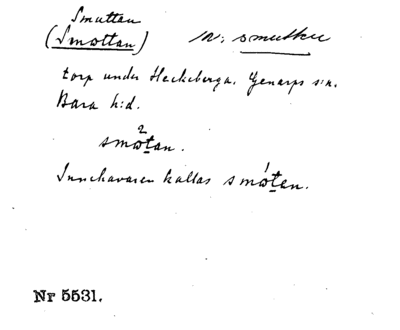 Smuttan
(Smøttan) N: smutku
torp under Heckeberga. Genarps s:n.
Bara h:d.
2
smøtan.
1
Innehavaren kallas smøten.
Nr 5531.